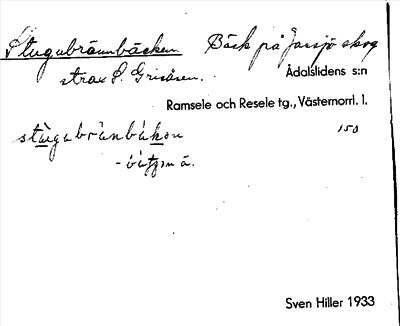 Stugubrännbäcken Bäck på Jansjö skog
strax S. Grisåsen.
Ådalslidens s:n
Ramsele och Resele tg., Västernorrl. l.
stùgubrànbàkǝn 150
Sven Hiller 1933